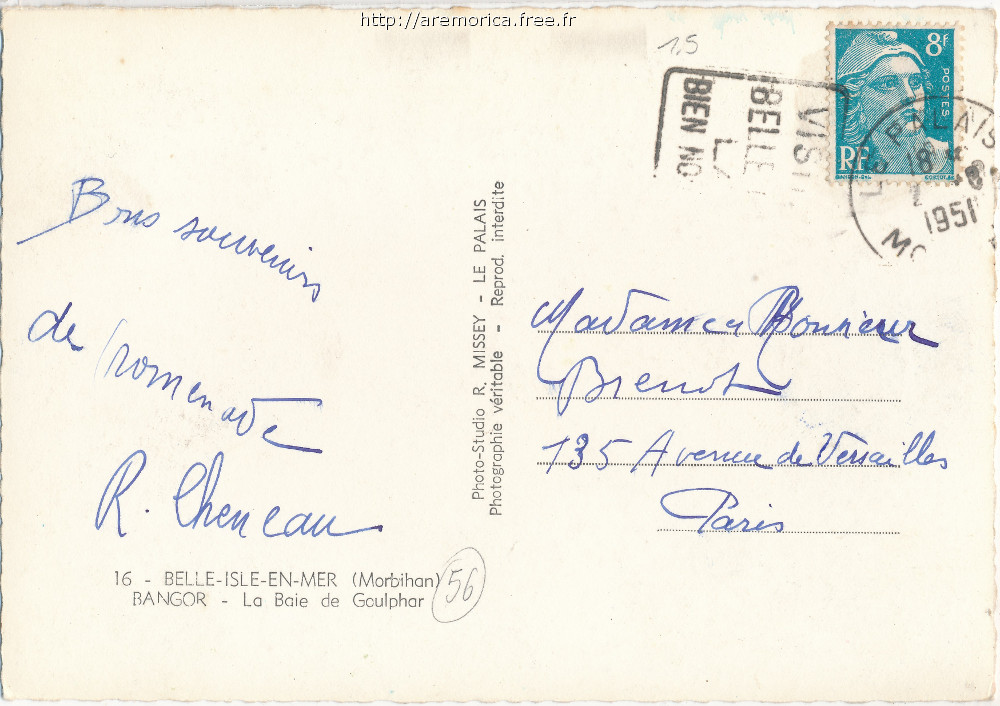 http://aremorica.free.fr
15
BIEN NO
BELLE
8F
POSTES
RF
PALAIS
18
1951
Bons souvenirs
de promenade
R. Cheneau
Photo-Studio R. MISSEY - LE PALAIS
Photographie véritable - Reprod. interdite
Madame et Monsieur
Brenot
135 Avenue de Versailles
Paris
16 - BELLE-ISLE-EN-MER (Morbihan)
BANGOR - La Baie de Goulphar
56